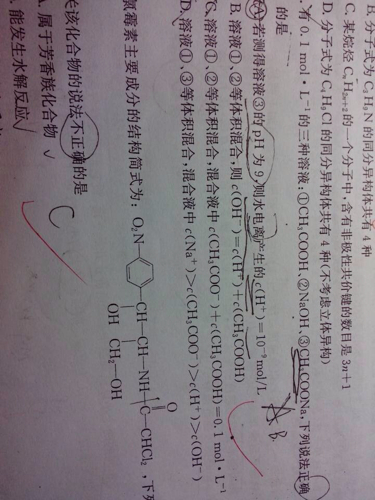 B. 分子式为 C₃H₉N 的同分异构体共有 4 种
C. 某烷烃 CₙH₂ₙ₊₂ 的一个分子中,含有非极性共价键的数目是 3n+1
D. 分子式为 C₄H₉Cl 的同分异构体共有 4 种(不考虑立体异构)
. 有 0.1 mol·L⁻¹ 的三种溶液:①CH₃COOH、②NaOH、③CH₃COONa,下列说法正确
的是
A. 若测得溶液③的 pH 为 9,则水电离产生的 c(H⁺)=10⁻⁹ mol/L
A. B.
B. 溶液①、②等体积混合,则 c(OH⁻)=c(H⁺)+c(CH₃COOH)
C. 溶液①、②等体积混合,混合液中 c(CH₃COO⁻)+c(CH₃COOH)=0.1 mol·L⁻¹
D. 溶液①、③等体积混合,混合液中 c(Na⁺)>c(CH₃COO⁻)>c(H⁺)>c(OH⁻)
氯霉素主要成分的结构简式为: O₂N— —CH—CH—NH—C—CHCl₂ ,下列
OH CH₂—OH O
关该化合物的说法不正确的是
C
. 属于芳香族化合物 √
. 能发生水解反应 √